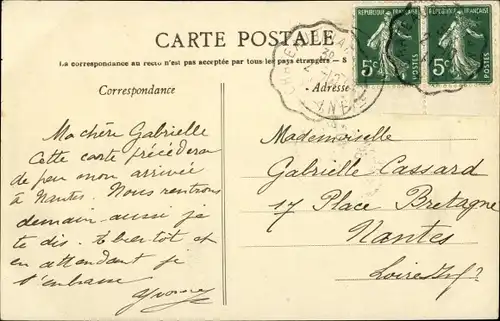 CARTE POSTALE
La correspondance au recto n'est pas acceptée par tous les pays étrangers. — S
Correspondance
Adresse
REPUBLIQUE FRANÇAISE
5c POSTES
REPUBLIQUE FRANÇAISE
5c POSTES
Ma chère Gabrielle
Cette carte précédera
de peu mon arrivée
à Nantes. Nous rentrons
demain aussi je
te dis. A bientôt et
en attendant je
t'embrasse
Yvonne
Mademoiselle
Gabrielle Cassard
17 Place Bretagne
Nantes
Loire Inf?